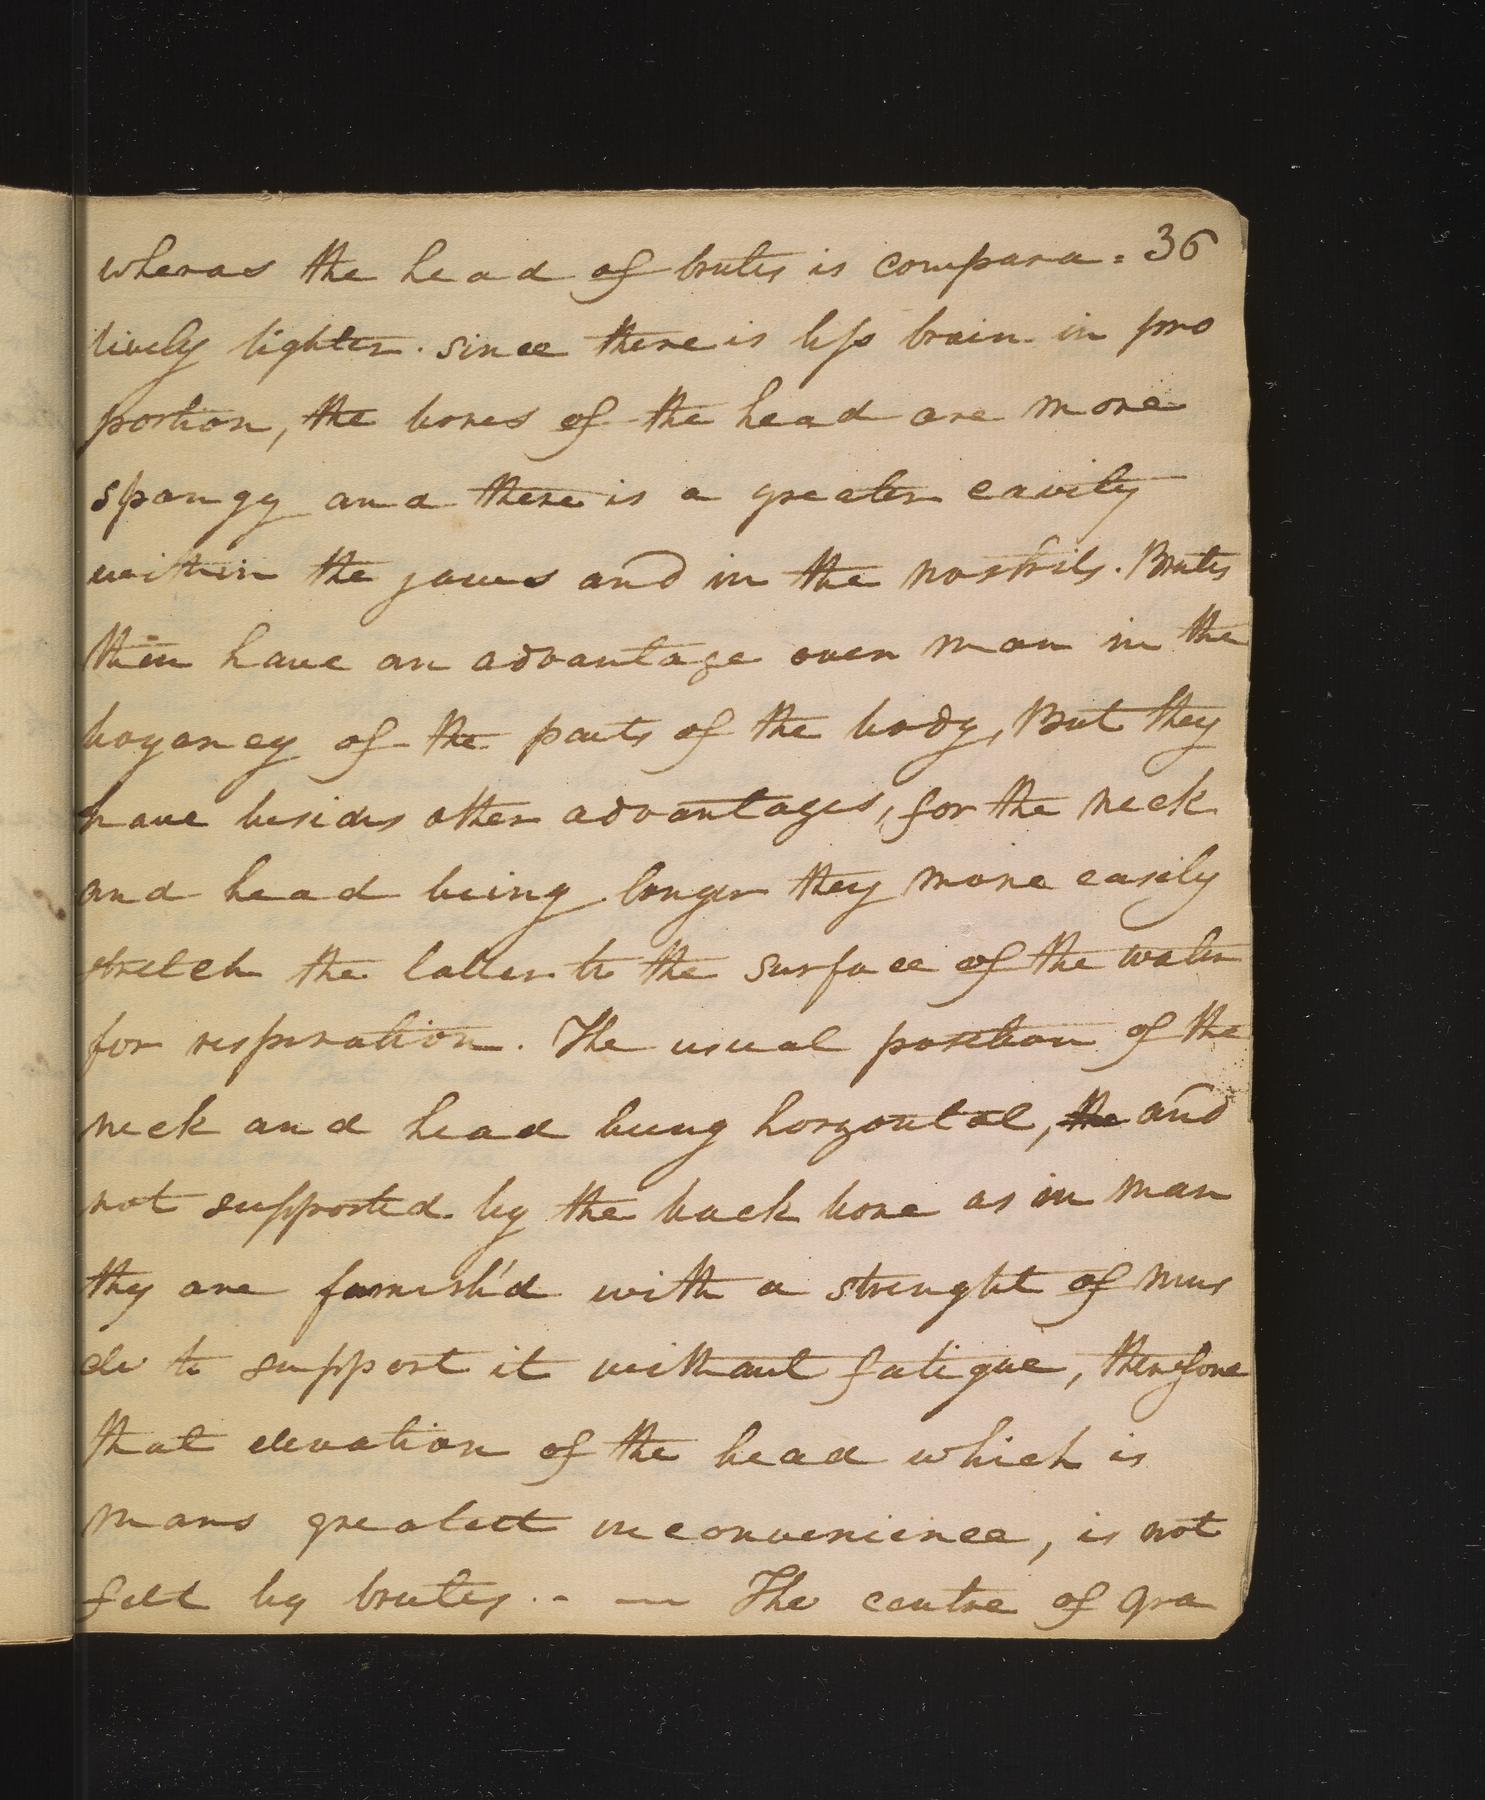 36
wheras the head of brutes is compara=
tively lighter. since there is less brain in pro
portion, the bones of the head are more
spongy and there is a greater cavity
within the jaws and in the nostrils. Brutes
then have an advantage over man in the
boyancy of the parts of the body, But they
have besides other advantages, for the neck
and head being longer they more easily
stretch the latter to the surface of the water
for respiration. The usual position of the
neck and head being horzontal, the and
not supported by the back bone as in man
they are furnish'd with a strenght of mus
cle to support it without fatigue, therefore
that elevation of the head which is
mans greatest inconvenience, is not
felt by brutes. - — The centre of gra